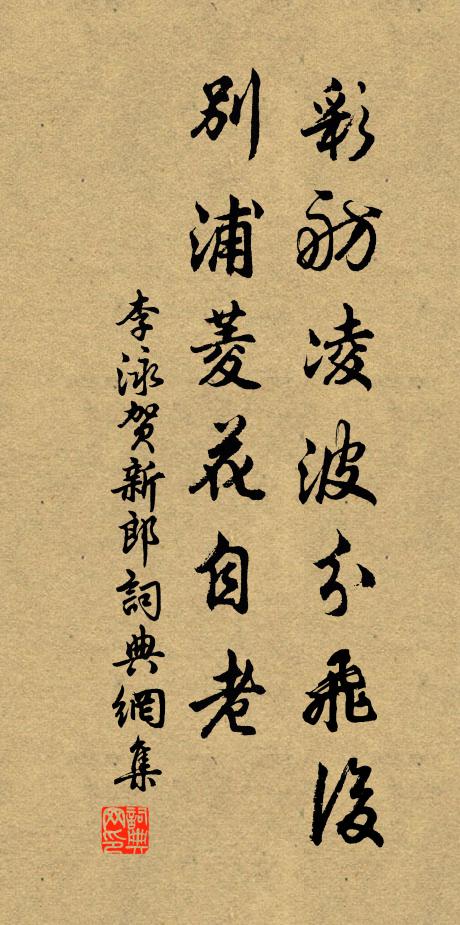 彩舫凌波分飛後
別浦菱花自老
李泳贺新郎詞典網集
詞典网印